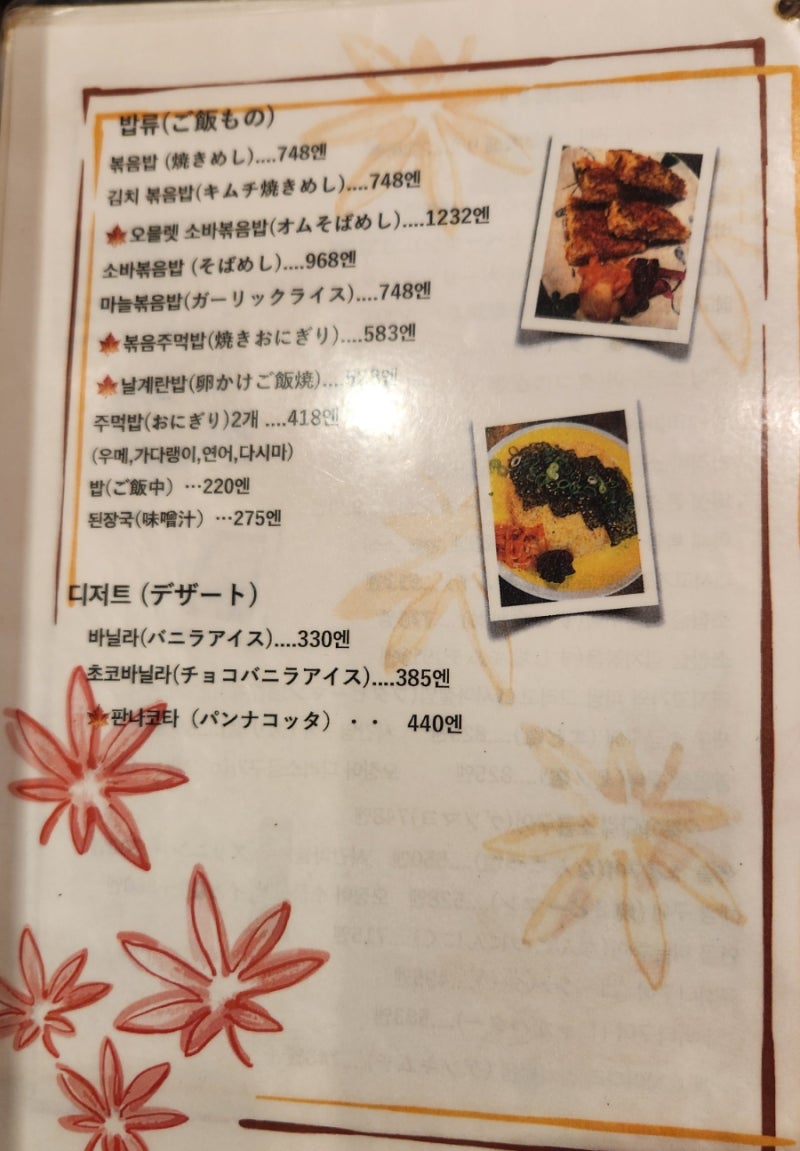 밥류(ご飯もの)
볶음밥 (焼きめし)....748엔
김치 볶음밥(キムチ焼きめし)....748엔
오믈렛 소바볶음밥(オムそばめし)....1232엔
소바볶음밥 (そばめし)....968엔
마늘볶음밥(ガーリックライス)....748엔
볶음주먹밥(焼きおにぎり)....583엔
날계란밥(卵かけご飯焼)....
주먹밥(おにぎり)2개 ....418엔
(우메,가다랭이,연어,다시마)
밥(ご飯中) …220엔
된장국(味噌汁) …275엔
디저트 (デザート)
바닐라(バニラアイス)....330엔
초코바닐라(チョコバニラアイス)....385엔
판나코타 (パンナコッタ)・・ 440엔